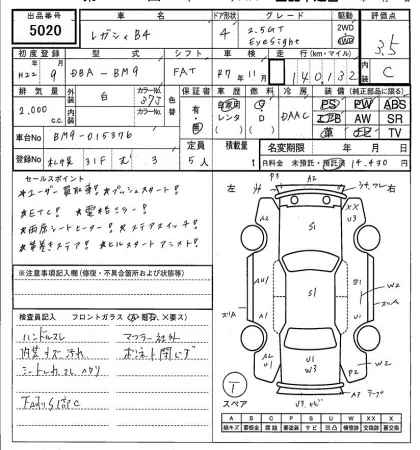 出品番号 車名 ドア形状 グレード 駆動 評価点
5020 レガシィ B4 4 2.5GT EyeSight 2WD 3.5
初度登録 型式 シフト 車検 走行(km・マイル) 内装
H22 9 DBA-BM9 FAT R7 11 140,132 C
排気量 外装 色 カラーNo. 色替 保証書 車歴 燃料 冷房 装備(純正部品に限る)
2,000 c.c. 白 37J 有・無 自家用 レンタ D AAC PS PW ABS
内装 カラーNo. エAB AW SR
革 ナビ TV
車台No BM9-015376 定員 積載量 名変期限 年 月 日
登録No 札幌 31F む 3 5人 t R料金 未預託・預託済 14,490円
セールスポイント
*ユーザー買取車! *プッシュスタート!
*ETC! *電格ミラー!
*両席シートヒーター! *ステアスイッチ!
*革巻きステア! *ヒルスタートアシスト!
※注意事項記入欄(修復・不具合箇所および状態等)
検査員記入 フロントガラス(A・飛石、×要ス)
ハンドルスレ マフラー社外
内装キズ汚れ ボンネット閉じず
シートレカスレヘタリ
下廻りS部C
左 右
P3 A2
A2 S1 XX U3
AU1 S1 B1 W2
スリA スリA
A2 U1 U1 W3 P2 W2
スペア
A B C P S U W X XX
線キズ 要板金 腐蝕 要塗装 サビ 凹凸 補修跡 交換跡 要交換